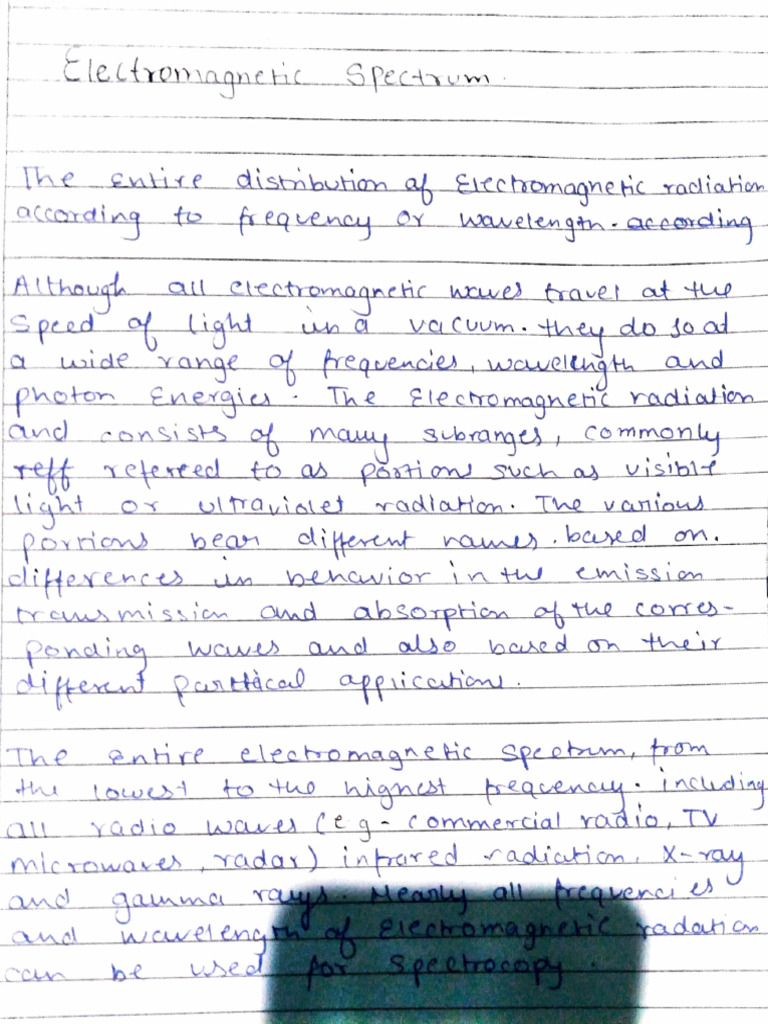 Electromagnetic Spectrum.
The entire distribution of Electromagnetic radiation
according to frequency or wavelength. according
Although all electromagnetic waves travel at the
Speed of light in a vacuum. they do so at
a wide range of frequencies, wavelength and
photon Energies. The Electromagnetic radiation
and consists of many subranges, commonly
reff refereed to as portions such as visible
light or ultraviolet radiation. The various
portions bear different names. based on.
differences in behavior in the emission
transmission and absorption of the corres-
ponding waves and also based on their
different parttical applications.
The entire electromagnetic spectrum, from
the lowest to the highest frequency. including
all radio waves (eg- commercial radio, TV
microwaves, radar) infrared radiation, X-ray
and gamma rays. Nearly all frequencies
and wavelength of Electromagnetic radation
can be used for spectrocopy.